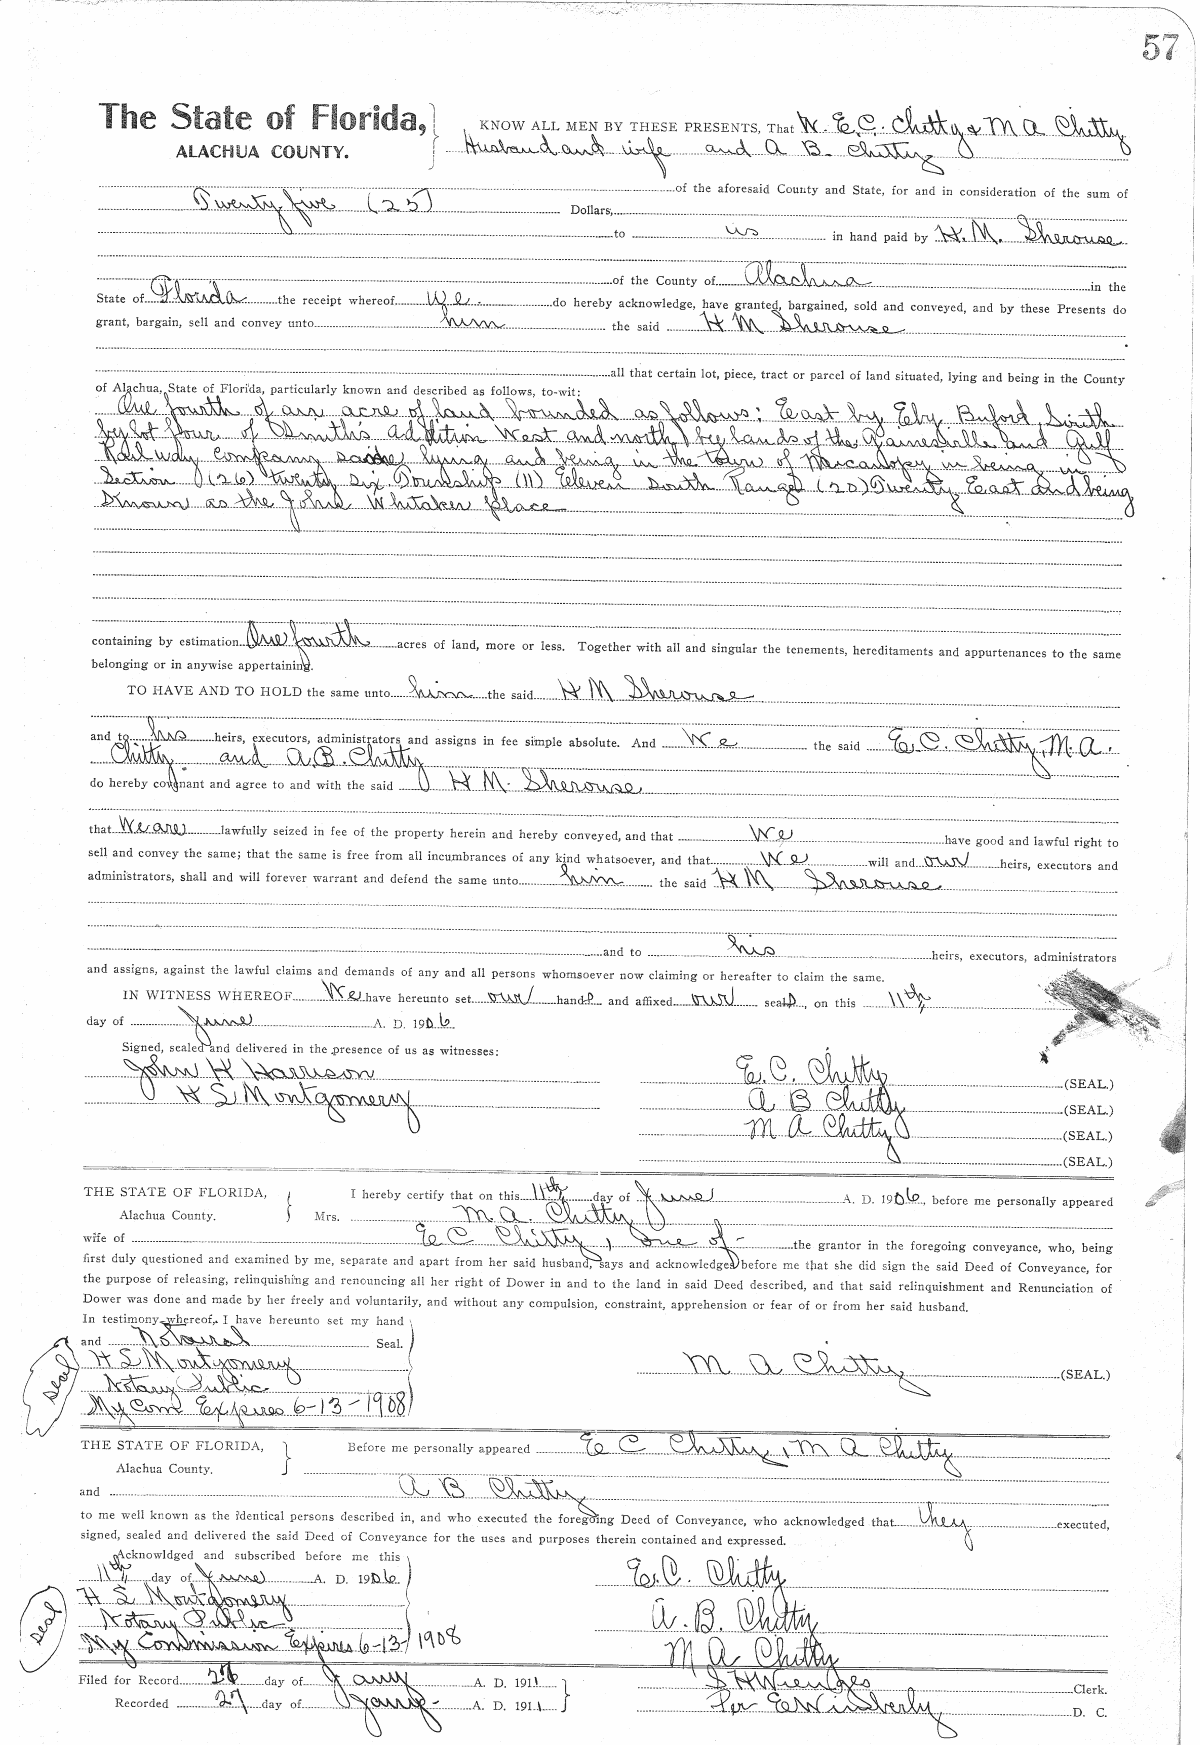 57
The State of Florida, KNOW ALL MEN BY THESE PRESENTS, That W. E. C. Chitty & M A Chitty
ALACHUA COUNTY. Husband and wife and A B. Chitty
of the aforesaid County and State, for and in consideration of the sum of
Twenty five (25) Dollars,
to us in hand paid by H. M. Sherouse
of the County of Alachua in the
State of Florida the receipt whereof we do hereby acknowledge, have granted, bargained, sold and conveyed, and by these Presents do
grant, bargain, sell and convey unto him the said H M Sherouse
all that certain lot, piece, tract or parcel of land situated, lying and being in the County
of Alachua, State of Florida, particularly known and described as follows, to-wit:
One fourth of an acre of land bounded as follows: East by Eby Buford, South
by lot four of Smith's Addition West and north by lands of the Gainesville and Gulf
Railway Company lying and being in the town of Micanopy in being in
Section (26) twenty six Township (11) Eleven South Range (20) Twenty East and being
Known as the John Whitaker place
containing by estimation One fourth acres of land, more or less. Together with all and singular the tenements, hereditaments and appurtenances to the same
belonging or in anywise appertaining.
TO HAVE AND TO HOLD the same unto him the said H M Sherouse
and to his heirs, executors, administrators and assigns in fee simple absolute. And We the said E. C. Chitty, M. A.
Chitty and A. B. Chitty
do hereby covenant and agree to and with the said H M. Sherouse
that We are lawfully seized in fee of the property herein and hereby conveyed, and that We have good and lawful right to
sell and convey the same; that the same is free from all incumbrances of any kind whatsoever, and that We will and our heirs, executors and
administrators, shall and will forever warrant and defend the same unto him the said H M Sherouse
and to his heirs, executors, administrators
and assigns, against the lawful claims and demands of any and all persons whomsoever now claiming or hereafter to claim the same.
IN WITNESS WHEREOF We have hereunto set our hands and affixed our seals, on this 11th
day of June A. D. 1906
Signed, sealed and delivered in the presence of us as witnesses:
John H Harrison E. C. Chitty (SEAL.)
H S Montgomery A B Chitty (SEAL.)
M A Chitty (SEAL.)
(SEAL.)
THE STATE OF FLORIDA, I hereby certify that on this 11th day of June A. D. 1906, before me personally appeared
Alachua County. Mrs. M A. Chitty
wife of E C Chitty, one of - the grantor in the foregoing conveyance, who, being
first duly questioned and examined by me, separate and apart from her said husband, says and acknowledges before me that she did sign the said Deed of Conveyance, for
the purpose of releasing, relinquishing and renouncing all her right of Dower in and to the land in said Deed described, and that said relinquishment and Renunciation of
Dower was done and made by her freely and voluntarily, and without any compulsion, constraint, apprehension or fear of or from her said husband.
In testimony whereof, I have hereunto set my hand
and Notarial Seal.
seal H S Montgomery M A Chitty (SEAL)
Notary Public
My Com Expires 6-13-1908
THE STATE OF FLORIDA, Before me personally appeared E C Chitty, M A Chitty
Alachua County.
and A B Chitty
to me well known as the identical persons described in, and who executed the foregoing Deed of Conveyance, who acknowledged that they executed,
signed, sealed and delivered the said Deed of Conveyance for the uses and purposes therein contained and expressed.
Acknowldged and subscribed before me this
11th day of June A. D. 1906. E. C. Chitty
seal H S Montgomery
Notary Public A. B. Chitty
My Commission Expires 6-13-1908 M A Chitty
Filed for Record 26 day of Jany A. D. 1911 S H Wienges Clerk.
Recorded 27 day of Jany- A. D. 1911. Per E Wimberly D. C.